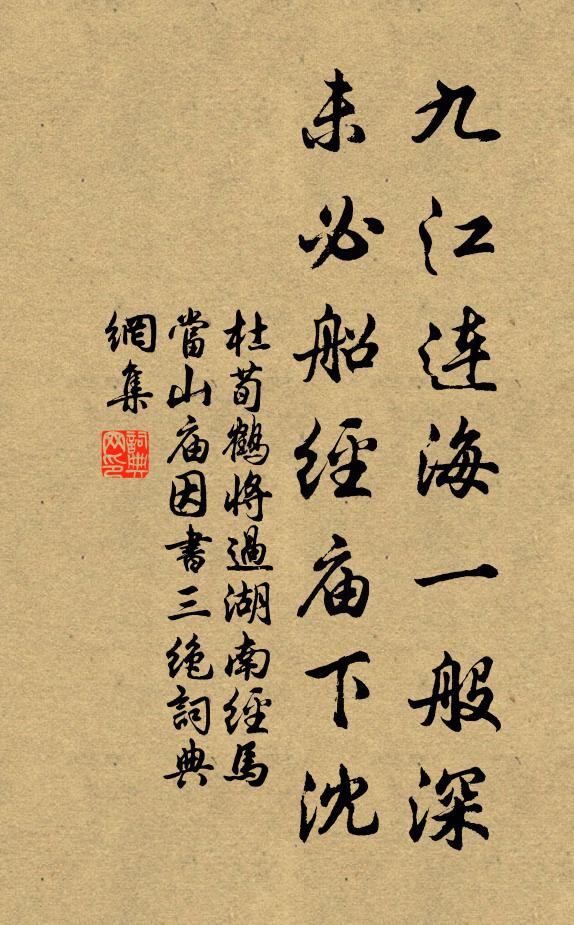 九江连海一般深
未必船經庙下沈
杜荀鹤将過湖南經馬
當山庙因書三绝詞典
網集
詞典網印